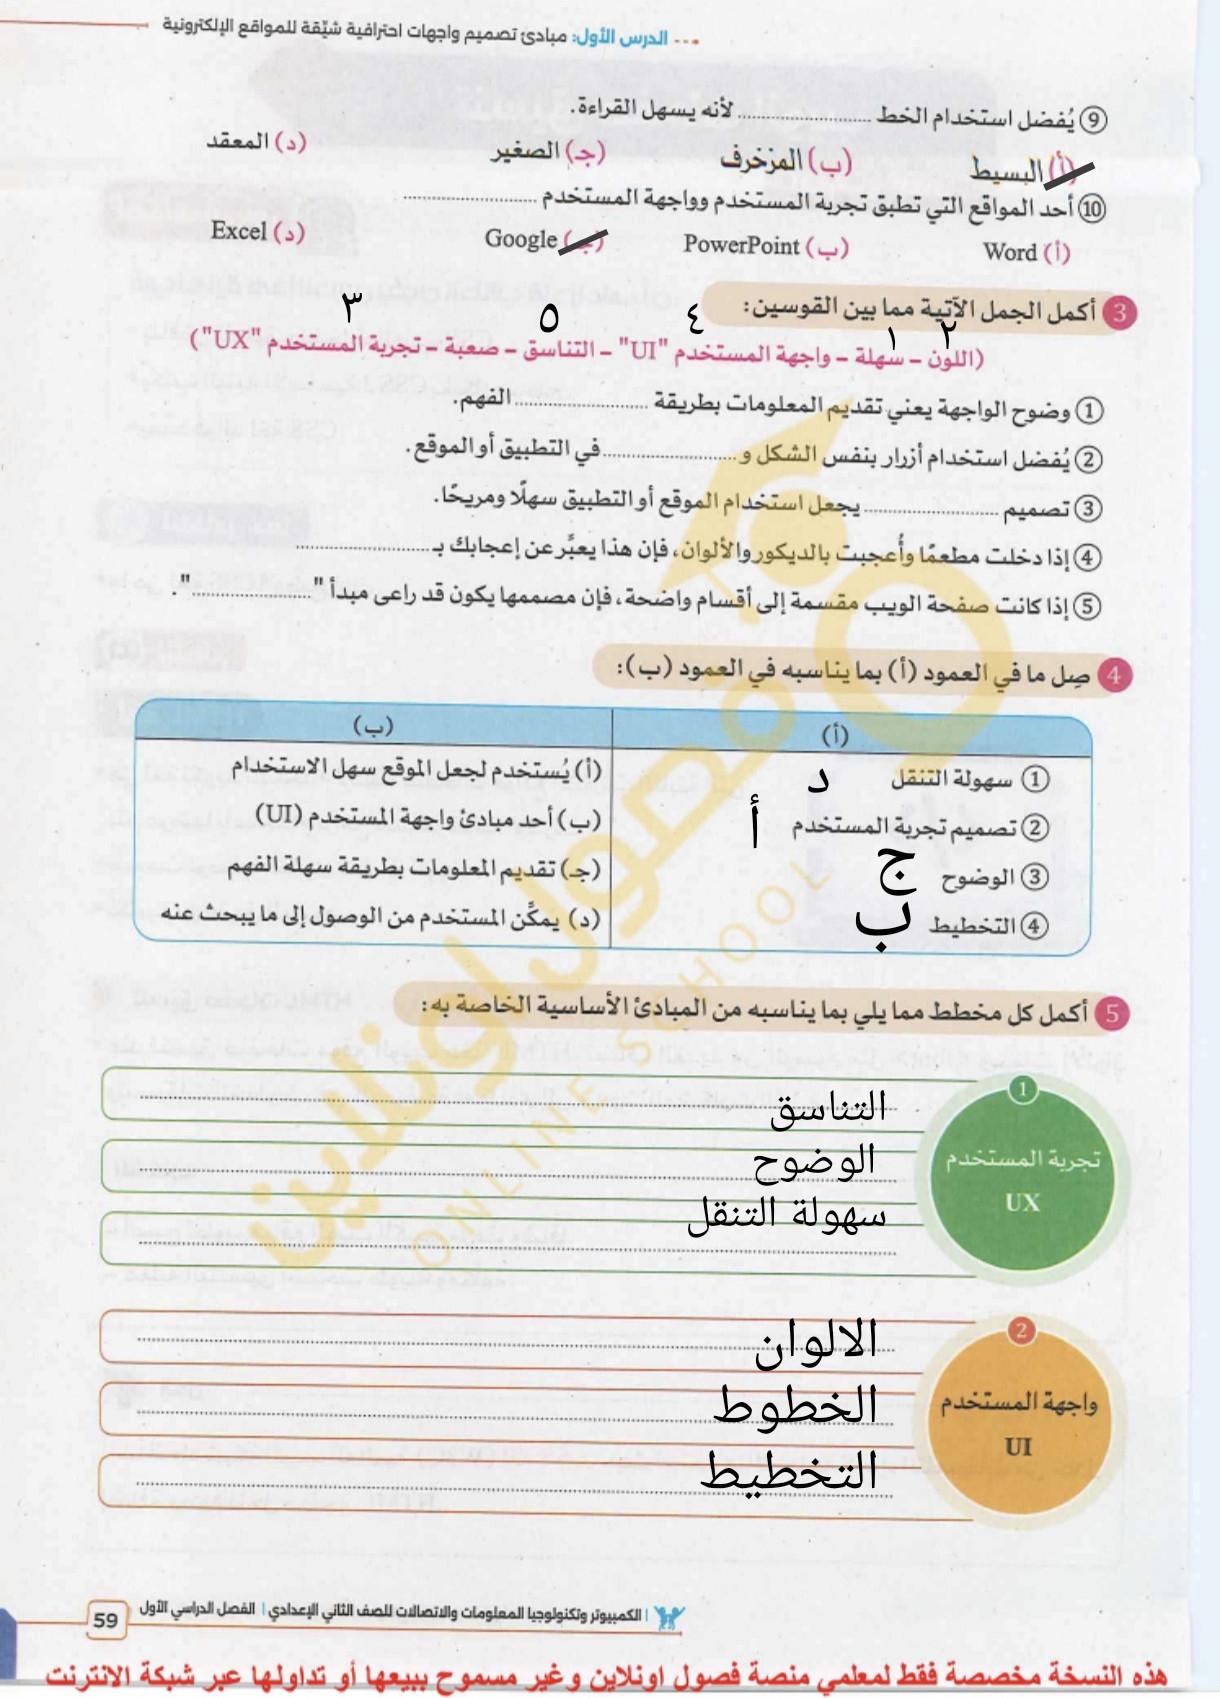 الدرس الأول: مبادئ تصميم واجهات احترافية شيّقة للمواقع الإلكترونية
⑨ يُفضل استخدام الخط .................... لأنه يسهل القراءة.
(أ) البسيط (ب) المزخرف (جـ) الصغير (د) المعقد
⑩ أحد المواقع التي تطبق تجربة المستخدم وواجهة المستخدم ....................
(أ) Word (ب) PowerPoint (جـ) Google (د) Excel
3 أكمل الجمل الآتية مما بين القوسين:
٢ ١ ٤ ٥ ٣
(اللون – سهلة – واجهة المستخدم "UI" – التناسق – صعبة – تجربة المستخدم "UX")
① وضوح الواجهة يعني تقديم المعلومات بطريقة .................... الفهم.
② يُفضل استخدام أزرار بنفس الشكل و .................... في التطبيق أو الموقع.
③ تصميم .................... يجعل استخدام الموقع أو التطبيق سهلًا ومريحًا.
④ إذا دخلت مطعمًا وأُعجبت بالديكور والألوان، فإن هذا يعبَّر عن إعجابك بـ ....................
⑤ إذا كانت صفحة الويب مقسمة إلى أقسام واضحة، فإن مصممها يكون قد راعى مبدأ "....................".
4 صِل ما في العمود (أ) بما يناسبه في العمود (ب):
(أ) (ب)
① سهولة التنقل د (أ) يُستخدم لجعل الموقع سهل الاستخدام
② تصميم تجربة المستخدم أ (ب) أحد مبادئ واجهة المستخدم (UI)
③ الوضوح ج (جـ) تقديم المعلومات بطريقة سهلة الفهم
④ التخطيط ب (د) يمكِّن المستخدم من الوصول إلى ما يبحث عنه
5 أكمل كل مخطط مما يلي بما يناسبه من المبادئ الأساسية الخاصة به:
1
تجربة المستخدم
UX
التناسق
الوضوح
سهولة التنقل
2
واجهة المستخدم
UI
الالوان
الخطوط
التخطيط
فصول اونلاين
ONLINE SCHOOL
الكمبيوتر وتكنولوجيا المعلومات والاتصالات للصف الثاني الإعدادي | الفصل الدراسي الأول
59
هذه النسخة مخصصة فقط لمعلمي منصة فصول اونلاين وغير مسموح ببيعها أو تداولها عبر شبكة الانترنت